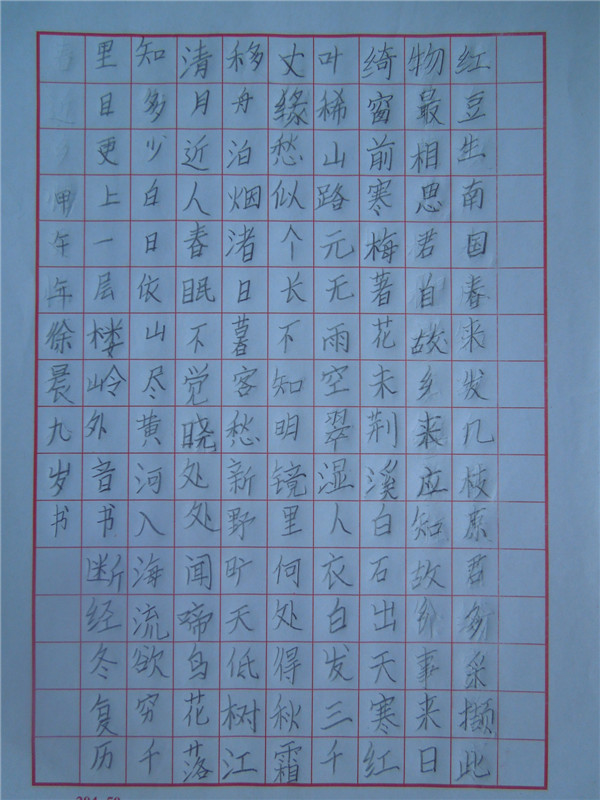 红豆生南国春来发几枝愿君多采撷此
物最相思君自故乡来应知故乡事来日
绮窗前寒梅著花未荆溪白石出天寒红
叶稀山路元无雨空翠湿人衣白发三千
丈缘愁似个长不知明镜里何处得秋霜
移舟泊烟渚日暮客愁新野旷天低树江
清月近人春眠不觉晓处处闻啼鸟花落
知多少白日依山尽黄河入海流欲穷千
里目更上一层楼岭外音书断经冬复历
近乡甲午年徐晨九岁书